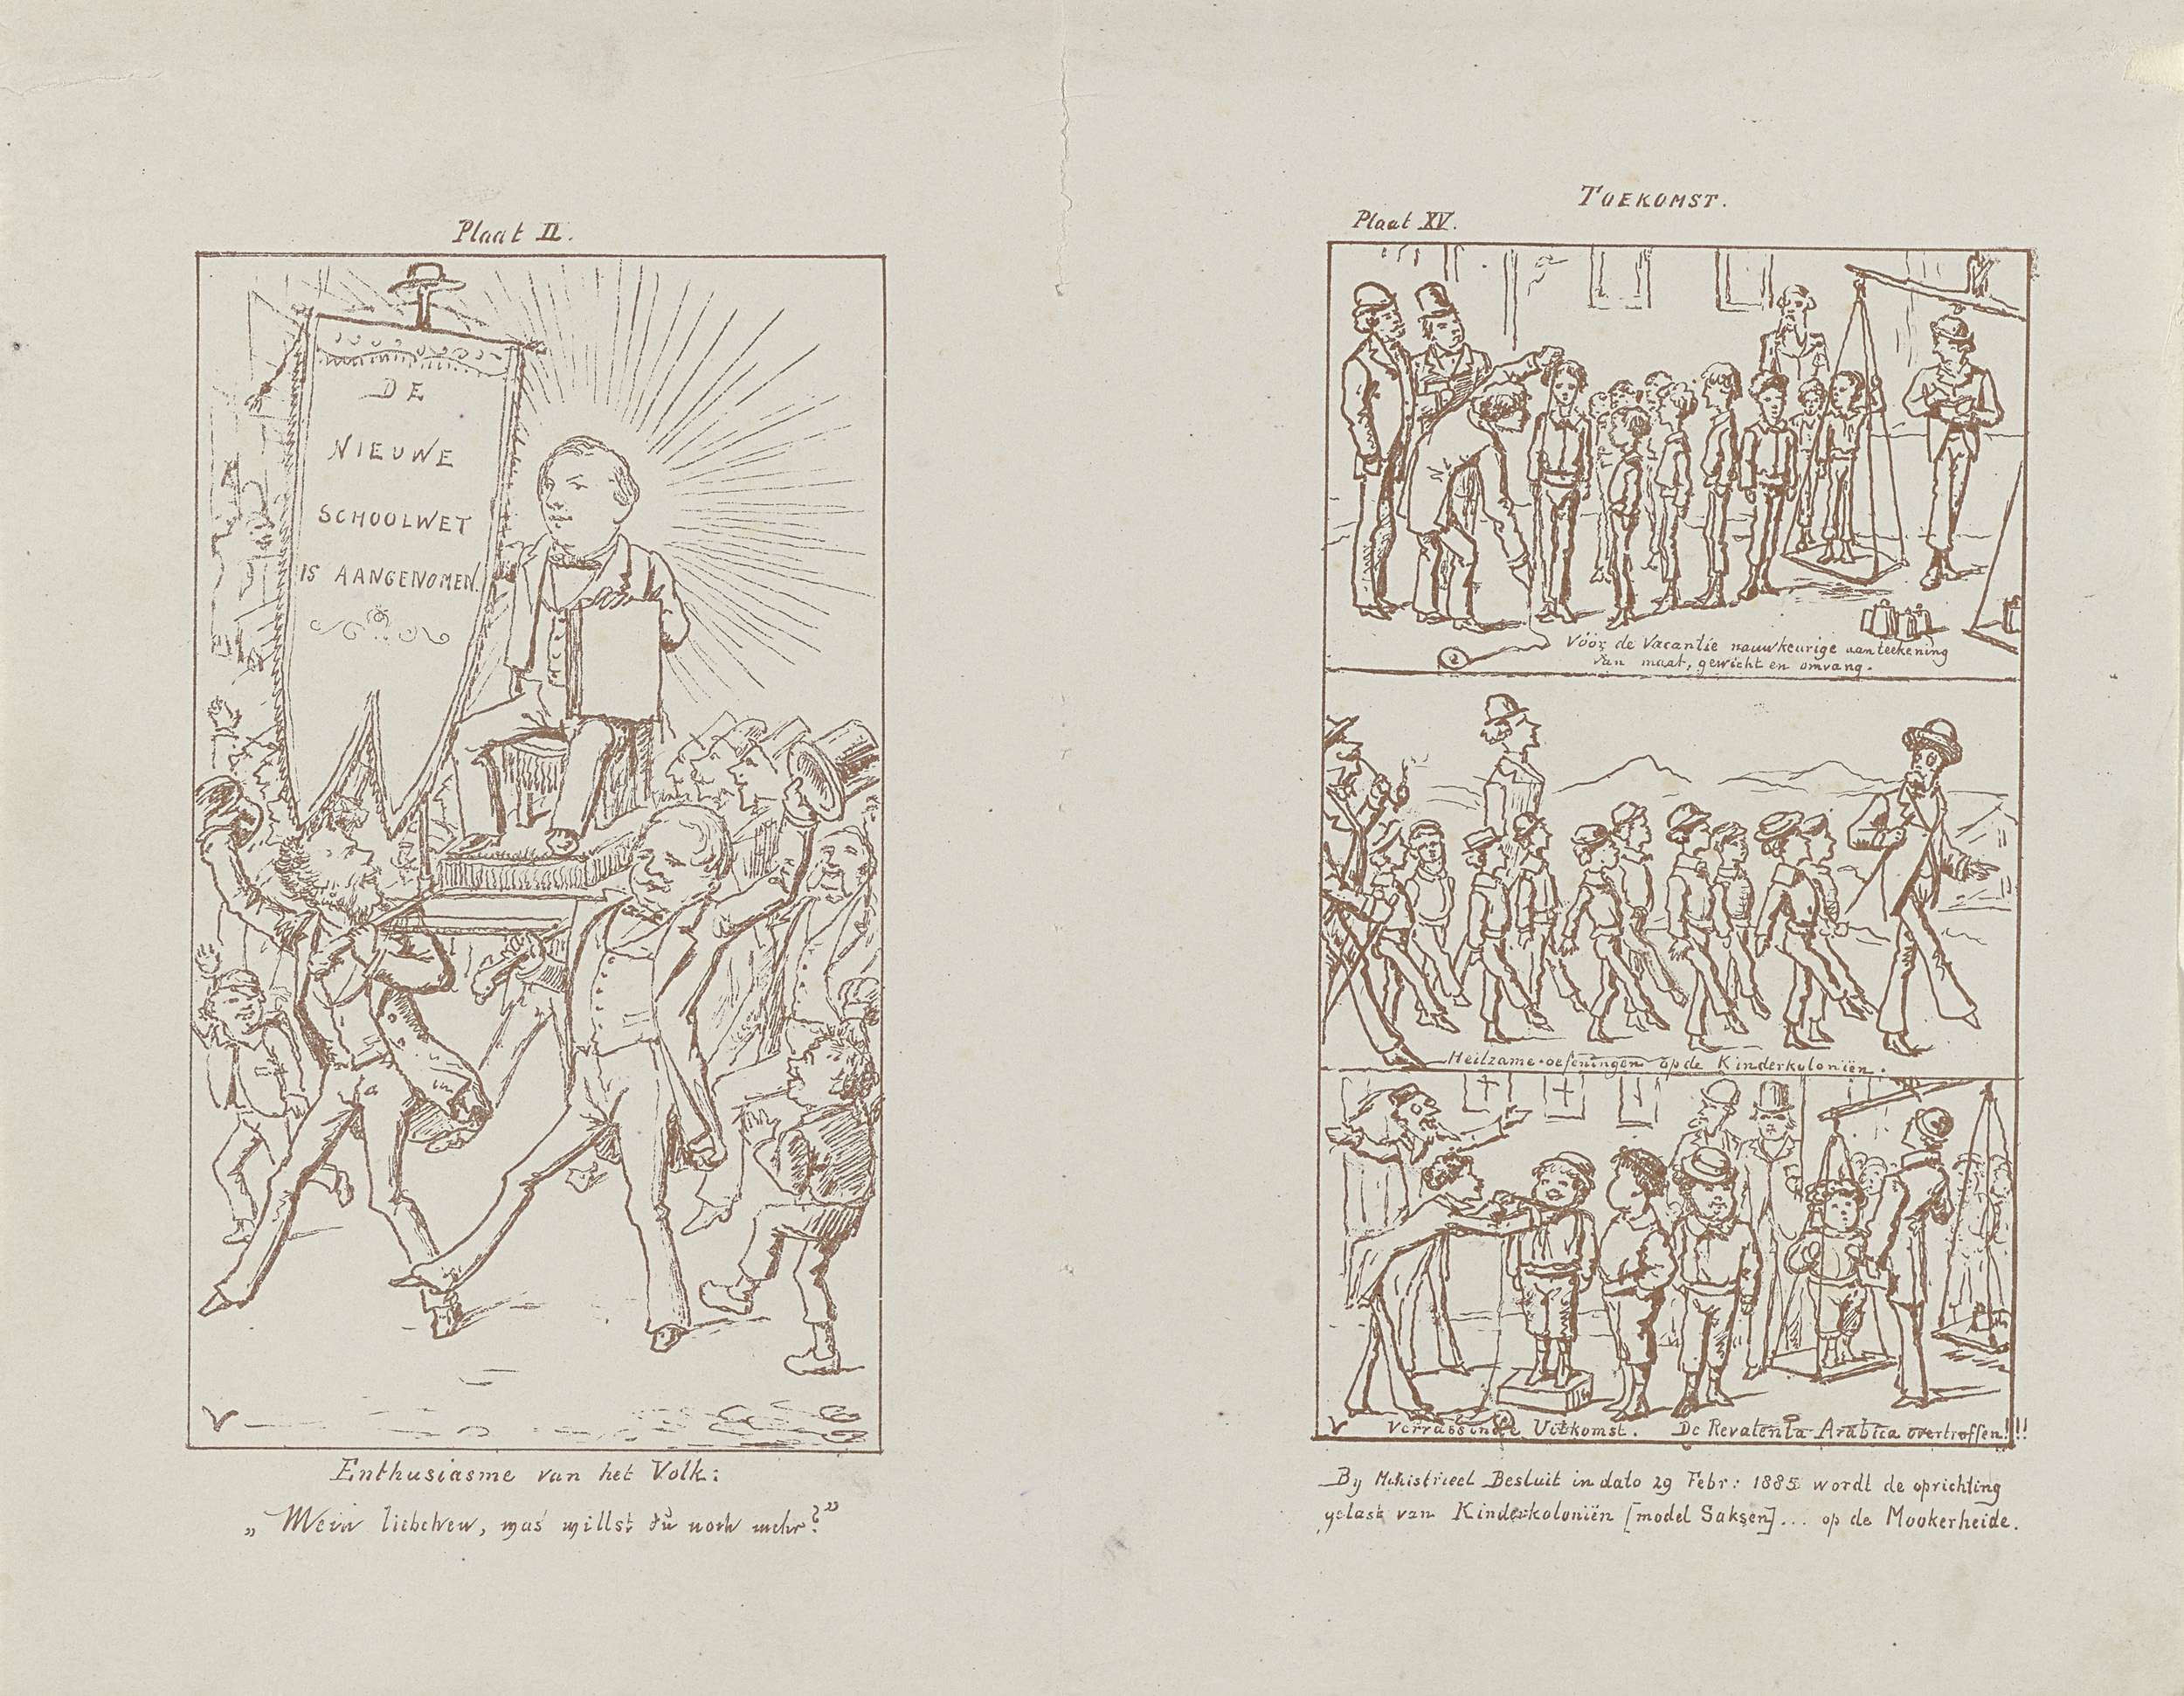 Plaat II.
DE
NIEUWE
SCHOOLWET
IS AANGENOMEN.
Enthusiasme van het Volk:
„Mein liebchen, was willst du noch mehr?”
TOEKOMST.
Plaat XV.
Vóór de Vacantie nauwkeurige aanteekening
van maat, gewicht en omvang.
Heilzame oefeningen op de Kinderkoloniën.
Verrassende Uitkomst. De Revalenta Arabica overtroffen!!!!
By Ministrieel Besluit in dato 29 Febr: 1885 wordt de oprichting
gelast van Kinderkoloniën [model Saksen]... op de Mookerheide.